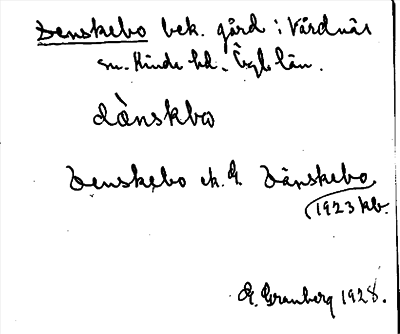 Denskebo bek. gård i Vårdnäs
sn. Kinda hd. Ögl. län.
dànskbo
Denskebo ek. G. Dänskebo
1923 kb.
G. Granberg 1928.